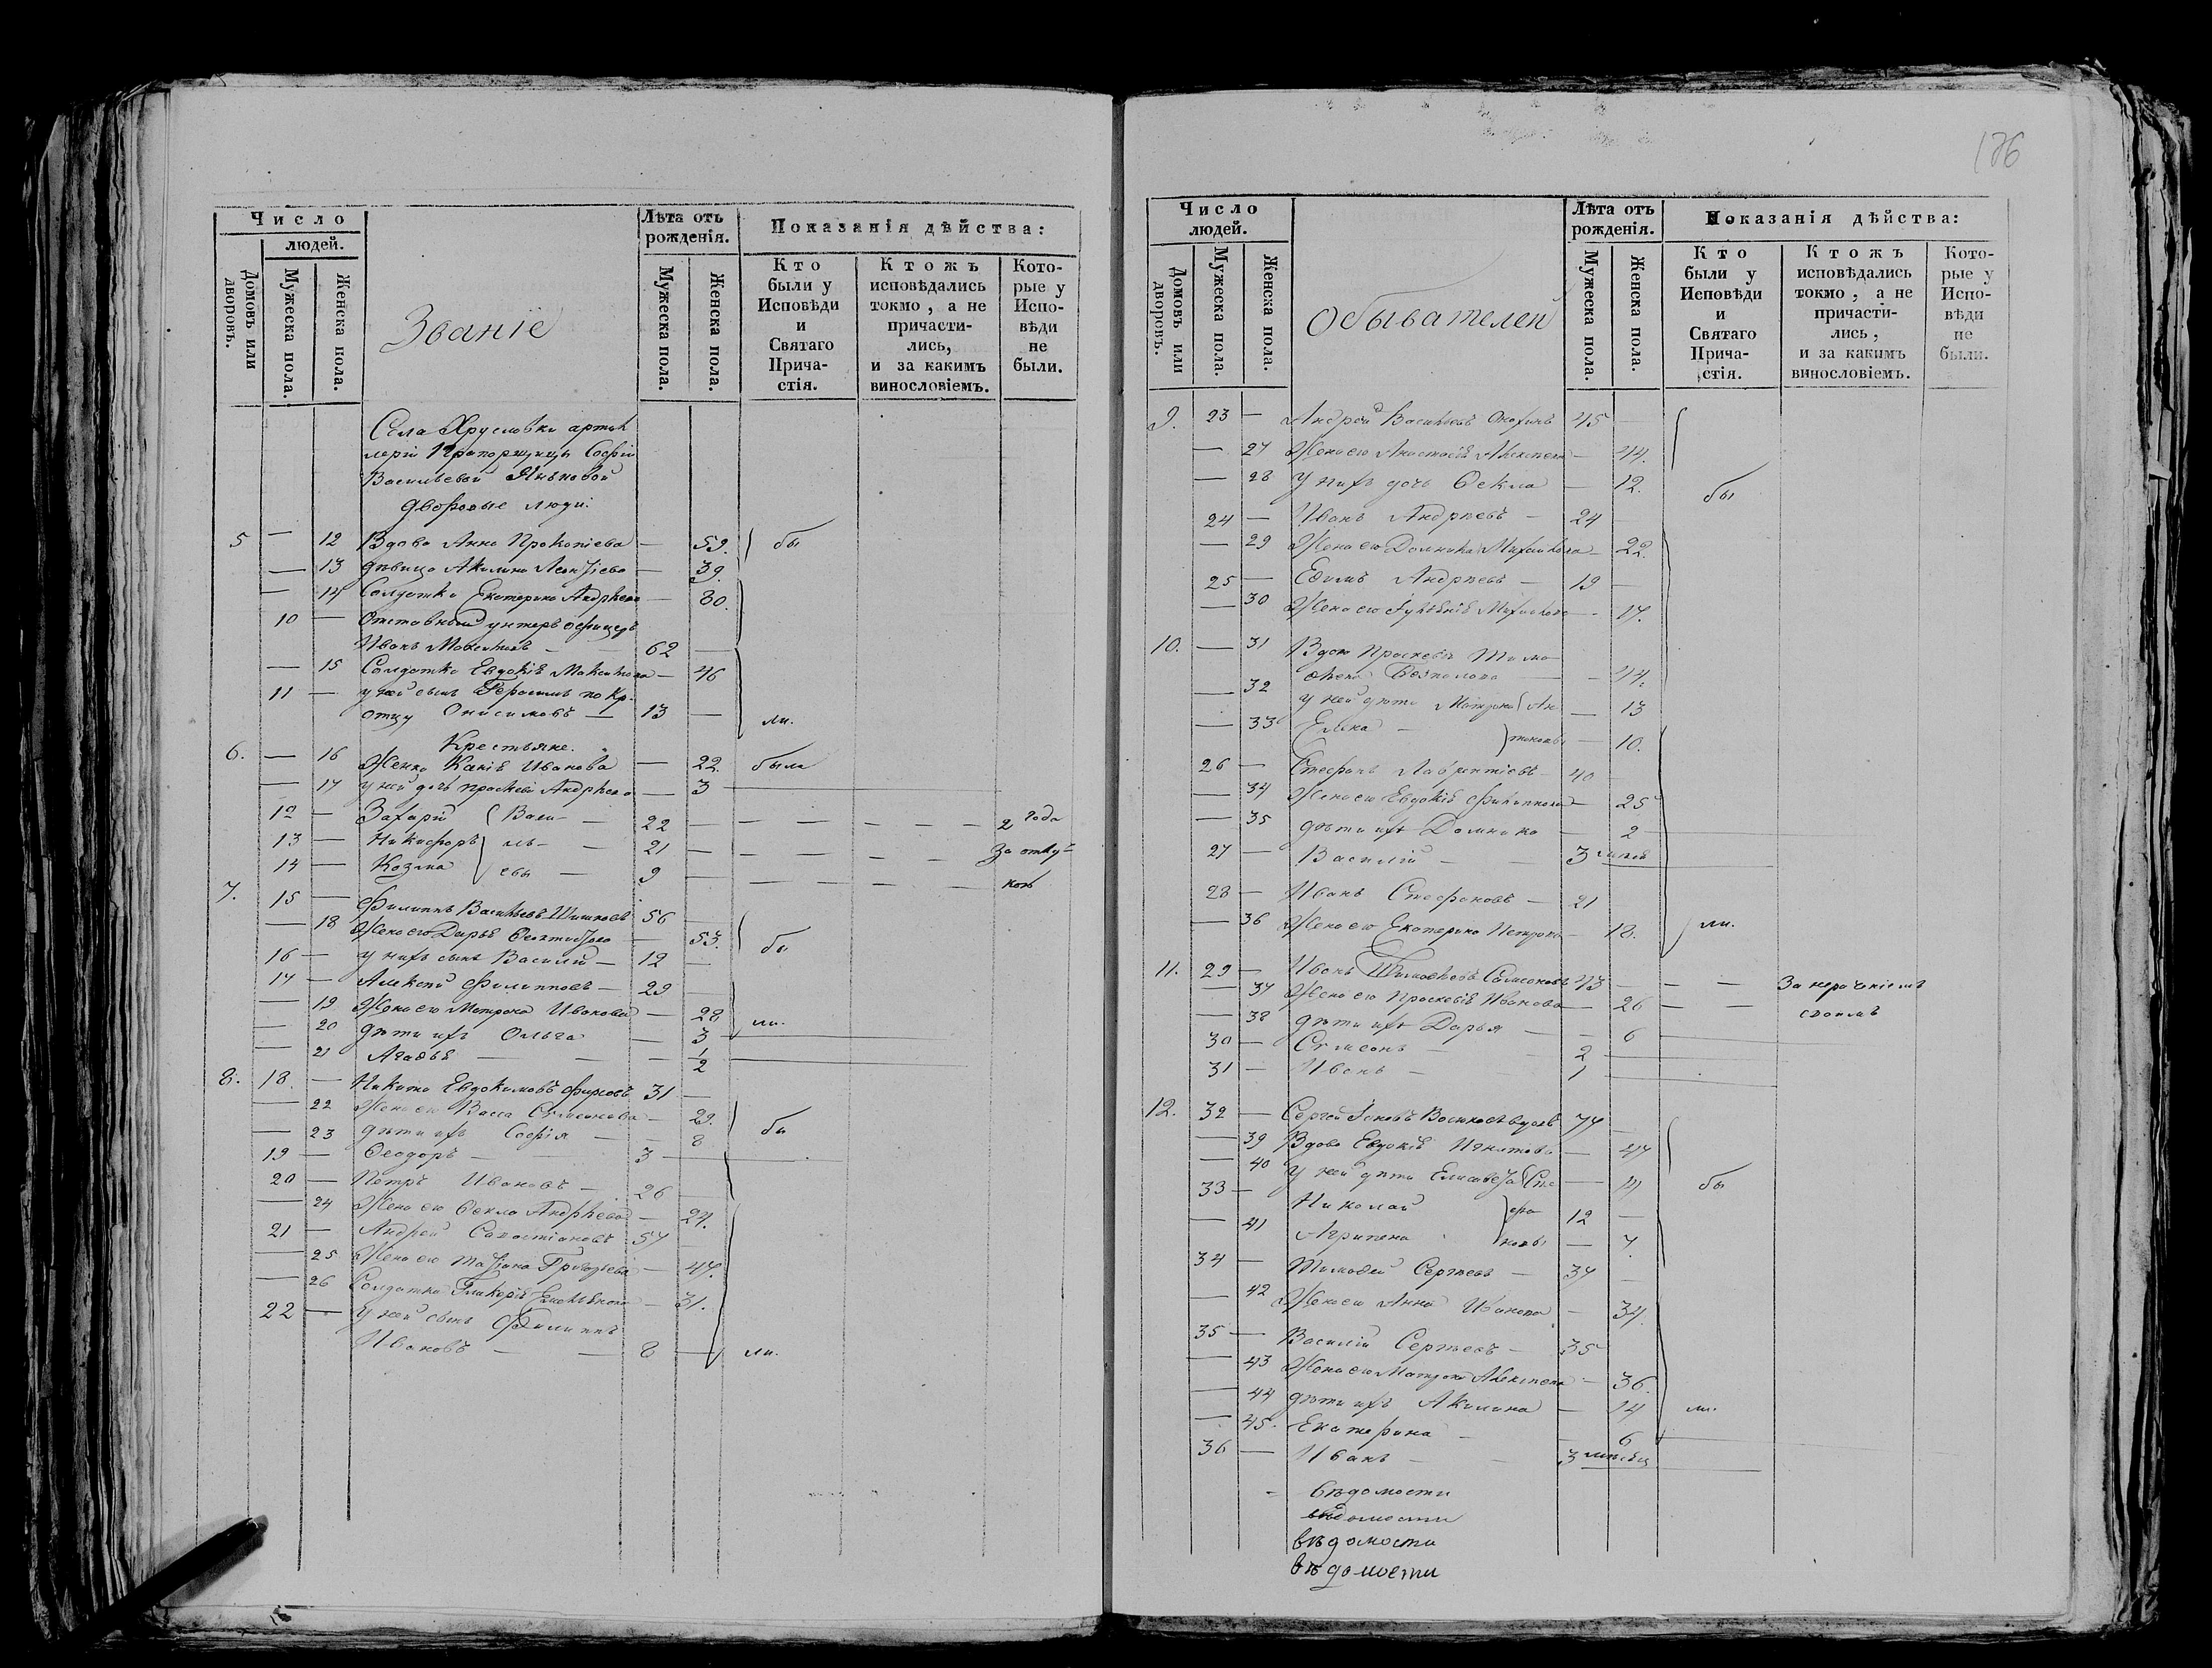 Число
людей.
Домовъ или дворовъ.
Мужеска пола.
Женска пола.
Званіе
Лѣта отъ
рожденія.
Мужеска пола.
Женска пола.
Показанія дѣйства:
Кто
были у
Исповѣди
и
Святаго
Прича-
стія.
Ктожъ
исповѣдались
токмо, а не
причасти-
лись,
и за какимъ
винословіемъ.
Кото-
рые у
Испо-
вѣди
не
были.
Села Хрусловки артил
леріи Прапорщицы Софіи
Васильевой
дворовые люди.
5 — 12 Вдова Анна Прокопіева — 59. бы
— 13 дѣвица Акилина Леонтіева — 39.
— 14 Солдатка Екатерина Андреева — 80.
10 — Отставный унтеръ офицеръ
Иванъ — 62 —
— 15 Солдатка Евдокія — 46
11 — у ней сынъ Герасимъ по кр.
отцу Онисимовъ — 13 — ли.
Крестьяне.
6. — 16 Женка Ксенія Иванова — 22. была
— 17 у ней дочь Андреева — 3
12 — Захарій Васи — 22 — — — — — — 2 года
13 — Никифоръ ль — 21 — — — — — — За отлу-
14 — Козма евы — 9 — — — — — кою
7. 15 — Филиппъ Васильевъ Шишковъ 56 —
— 18 Жена его Дарья — 53. бы
16 — у нихъ сынъ Василій — 12 —
17 — Алексѣй Филипповъ — 29 —
— 19 Жена его Матрона Иванова — 28 ли.
— 20 дѣти ихъ Ольга — 3
— 21 Агафья — — 1/2
8. 18. — Никита Евдокимовъ Фирсовъ 31 —
— 22 Жена его Васса Симеонова — 29.
— 23 дѣти ихъ Софія — 8 бы
19 — Ѳеодоръ — 3
20 — Петръ Ивановъ — 26 —
— 24 Жена его Ѳекла Андреева — 24.
21 — Андрей 57 —
— 25 Жена его Татіана Григорьева — 47.
— 26 Солдатка Гликерія — 31.
22 — у ней сынъ Филиппъ
Ивановъ — — 8 — ли.
Число
людей.
Домовъ или дворовъ.
Мужеска пола.
Женска пола.
Обывателей
Лѣта отъ
рожденія.
Мужеска пола.
Женска пола.
Показанія дѣйства:
Кто
были у
Исповѣди
и
Святаго
Прича-
стія.
Ктожъ
исповѣдались
токмо, а не
причасти-
лись,
и за какимъ
винословіемъ.
Кото-
рые у
Испо-
вѣди
не
были.
9. 23 — Андрей Васильевъ 45 —
— 27 Жена его Анастасія Алексѣева — 44.
— 28 у нихъ дочь Ѳекла — 12. бы
24 — Иванъ Андреевъ — 24 —
— 29 Жена его Домника Михайлова — 22.
25 — Ефимъ Андреевъ — 19 —
— 30 Жена его Михайлова — 17.
10. — 31 Вдова Праскевія Тимо
ѳеева — 44.
— 32 у ней дѣти Матрона Ан — 13
— 33 Елена тоновы — 10.
26 — Стефанъ Лаврентіевъ — 40 —
— 34 Жена его Евдокія Филиппова — 25
— 35 дѣти ихъ Домника — 2
27 — Василій — 3
28 — Иванъ Стефановъ — 21
— 36 Жена его Екатерина Петрова — 18. ли.
11. 29 — Иванъ Тимоѳеевъ 43 — — — За нераченіемъ
— 37 Жена его Праскевія Иванова — 26 — — своимъ
— 38 дѣти ихъ Дарья — 6
30 — Симеонъ — 2
31 — Иванъ — 1
12. 32 — Сергей вдовъ 74
— 39 Вдова Евдокія — 47
— 40 у ней дѣти Елисавета Сте — 4 бы
33 — Николай фа 12 —
— 41 Агрипена новы — 7.
34 — Тимоѳей Сергеевъ — 37 —
— 42 Жена его Анна Иванова — 34.
35 — Василій Сергеевъ — 35
— 43 Жена его Матрона Алексѣева — 36.
— 44 дѣти ихъ Акилина — 14 ли.
— 45. Екатерина — 6
36 — Иванъ — 3
вѣдомости
вѣдомости
вѣдомости
вѣдомости